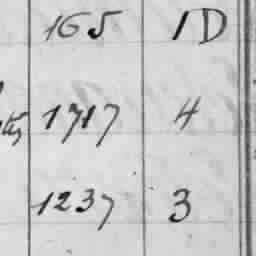 165 1D
1717 4
1237 3